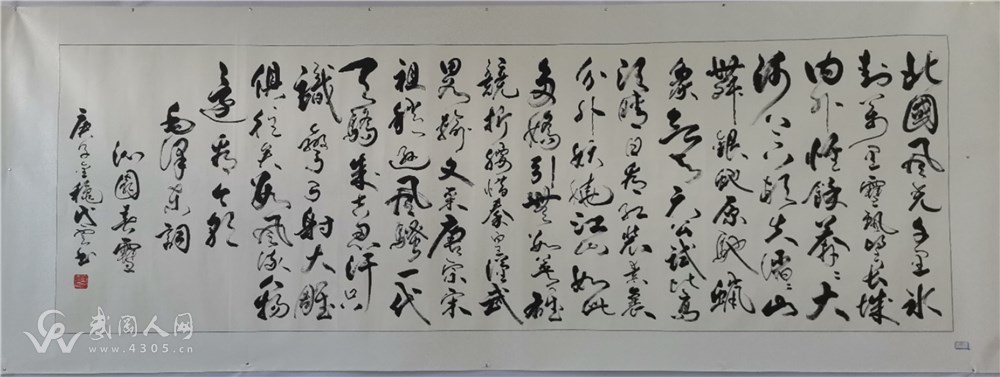 北國風光千里冰
封萬里雪飄望長城
内外惟餘莽々大
河上下頓失滔々山
舞銀蛇原馳蠟
象欲與天公試比高
須晴日看紅裝素裹
分外妖嬈江山如此
多嬌引無數英雄
競折腰惜秦皇漢武
略輸文采唐宗宋
祖稍遜風騷一代
天驕成吉思汗只
識彎弓射大雕
俱往矣數風流人物
還看今朝
毛澤東詞
沁園春雪
庚子金穐書
武冈人网
www.4305.cn